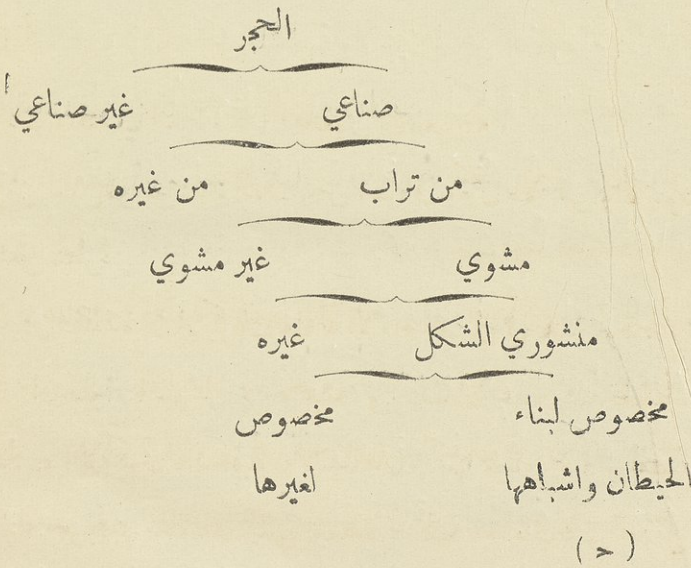 الحجر
صناعي غير صناعي
من تراب من غيره
مشوي غير مشوي
منشوري الشكل غيره
مخصوص لبناء مخصوص
الحيطان واشباهها لغيرها